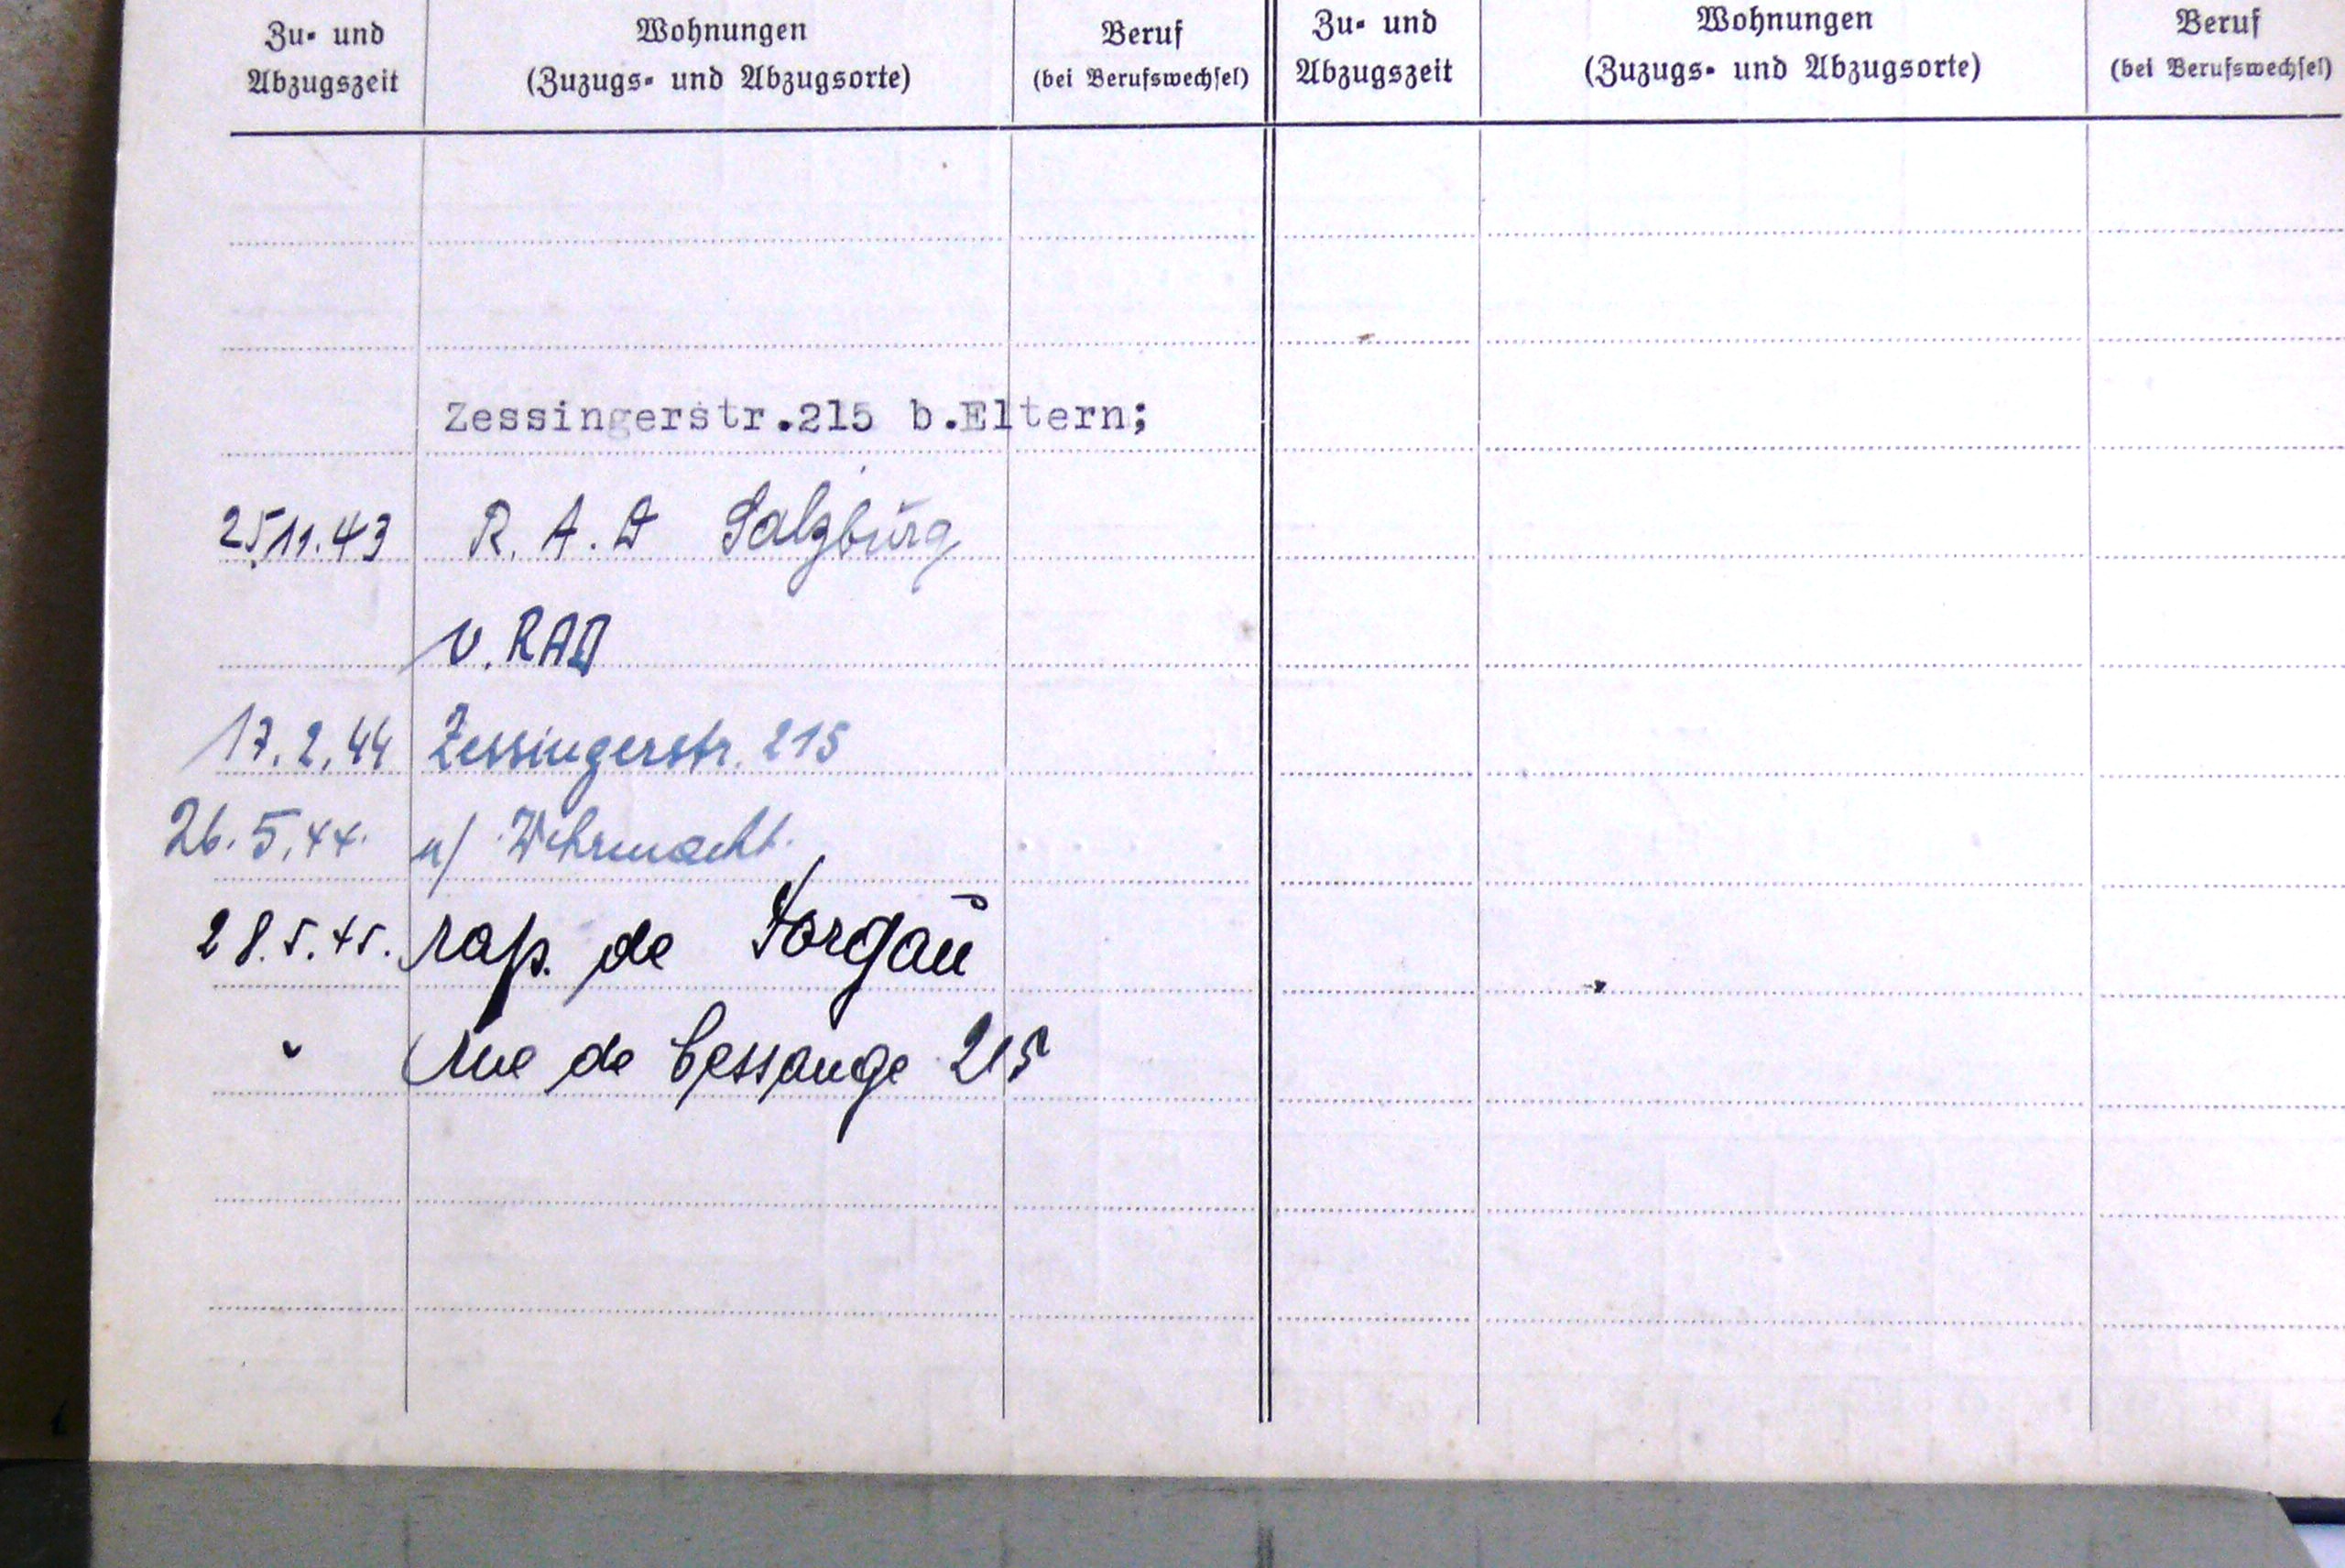 Zu- und Abzugszeit
Wohnungen
(Zuzugs- und Abzugsorte)
Beruf
(bei Berufswechsel)
Zu- und Abzugszeit
Wohnungen
(Zuzugs- und Abzugsorte)
Beruf
(bei Berufswechsel)
Zessingerstr.215 b.Eltern;
25.11.43 R. A. D Salzburg
v. RAD
17.2.44 Zessingerstr. 215
26.5.44. n/ Wehrmacht.
28.5.45. rap. de Torgau
" rue de Cessange 215